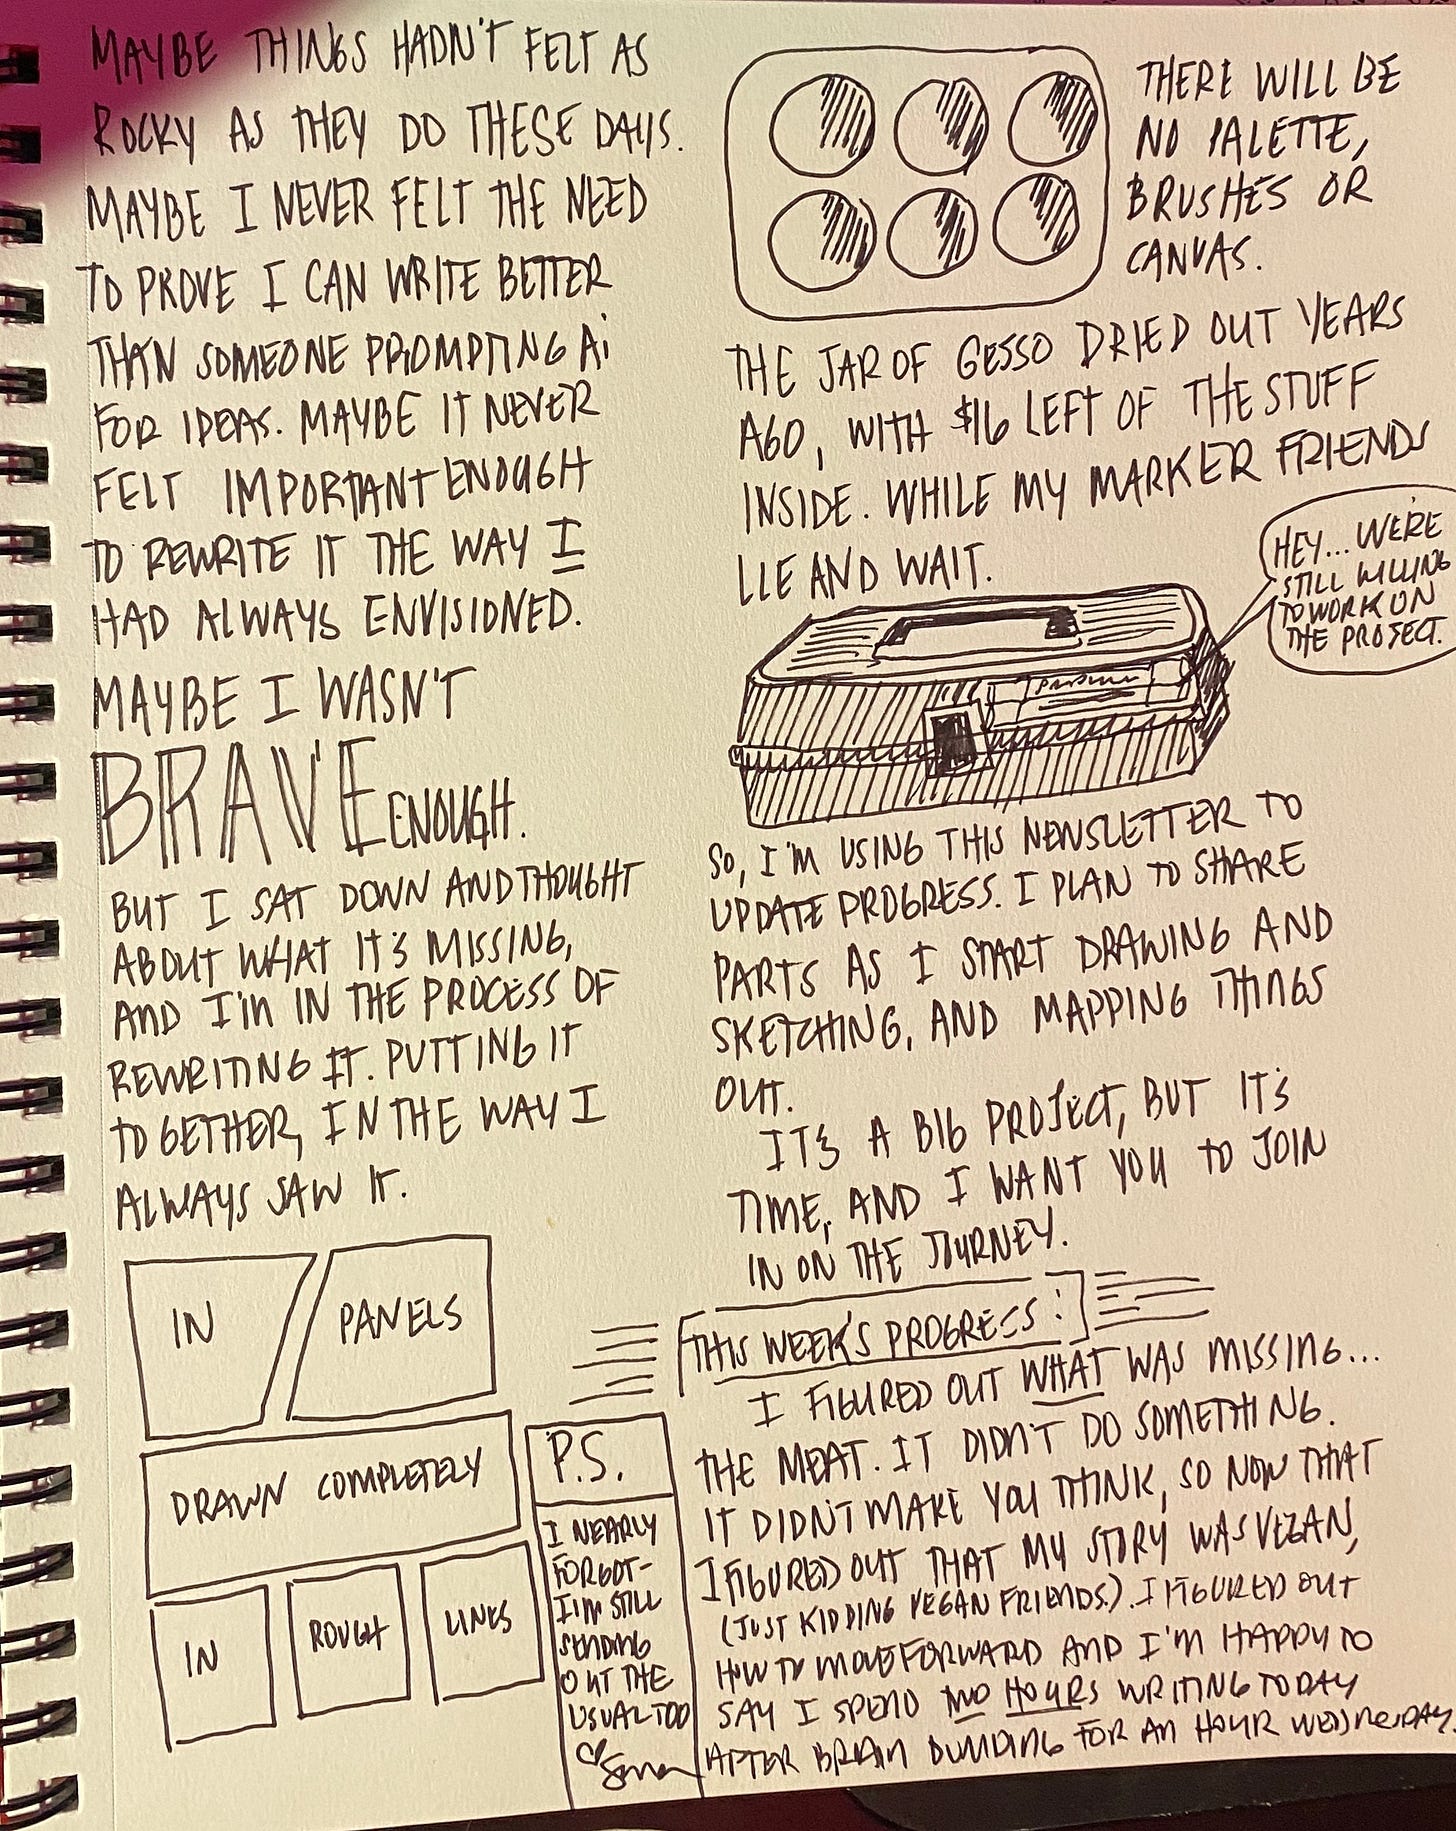 MAYBE THINGS HADN'T FELT AS
ROCKY AS THEY DO THESE DAYS.
MAYBE I NEVER FELT THE NEED
TO PROVE I CAN WRITE BETTER
THAN SOMEONE PROMPTING Ai
FOR IDEAS. MAYBE IT NEVER
FELT IMPORTANT ENOUGH
TO REWRITE IT THE WAY I
HAD ALWAYS ENVISIONED.
MAYBE I WASN'T
BRAVE ENOUGH.
BUT I SAT DOWN AND THOUGHT
ABOUT WHAT IT'S MISSING,
AND I'M IN THE PROCESS OF
REWRITING IT. PUTTING IT
TOGETHER, IN THE WAY I
ALWAYS SAW IT.
IN
PANELS
DRAWN COMPLETELY
IN
ROUGH
LINES
P.S.
I NEARLY
FORGOT-
I'M STILL
SENDING
OUT THE
USUAL TOO
THERE WILL BE
NO PALETTE,
BRUSHES OR
CANVAS.
THE JAR OF GESSO DRIED OUT YEARS
AGO, WITH $16 LEFT OF THE STUFF
INSIDE. WHILE MY MARKER FRIENDS
LIE AND WAIT.
HEY... WE'RE
STILL WILLING
TO WORK ON
THE PROJECT.
SO, I'M USING THIS NEWSLETTER TO
UPDATE PROGRESS. I PLAN TO SHARE
PARTS AS I START DRAWING AND
SKETCHING, AND MAPPING THINGS
OUT.
IT'S A BIG PROJECT, BUT IT'S
TIME, AND I WANT YOU TO JOIN
IN ON THE JOURNEY.
THIS WEEK'S PROGRESS:
I FIGURED OUT WHAT WAS MISSING...
THE MEAT. IT DIDN'T DO SOMETHING.
IT DIDN'T MAKE YOU THINK, SO NOW THAT
I FIGURED OUT THAT MY STORY WAS VEGAN,
(JUST KIDDING VEGAN FRIENDS.). I FIGURED OUT
HOW TO MOVE FORWARD AND I'M HAPPY TO
SAY I SPEND TWO HOURS WRITING TODAY
AFTER BRAIN DUMPING FOR AN HOUR WEDNESDAY.